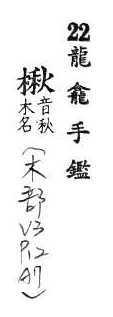 22龍龕手鑑
楸音秋木名(木部V3P12A7)